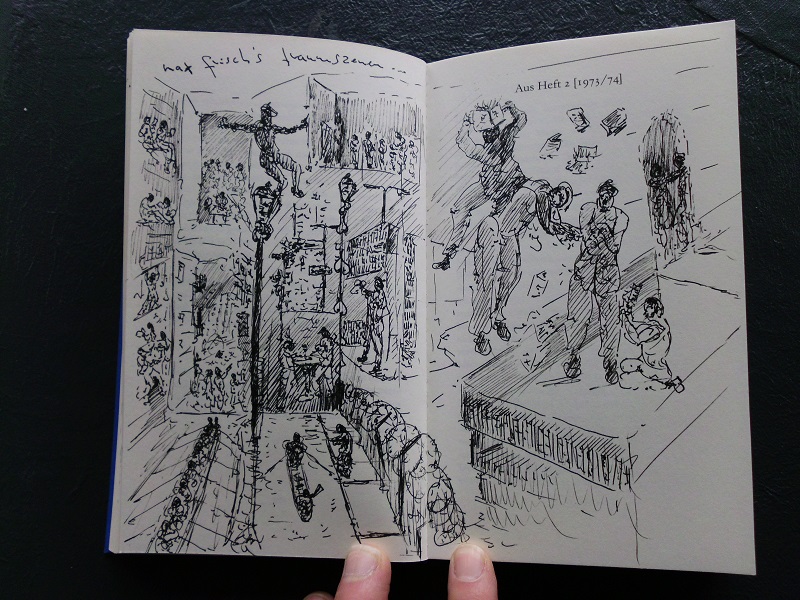 max frisch's traumszenen ...
Aus Heft 2 [1973/74]